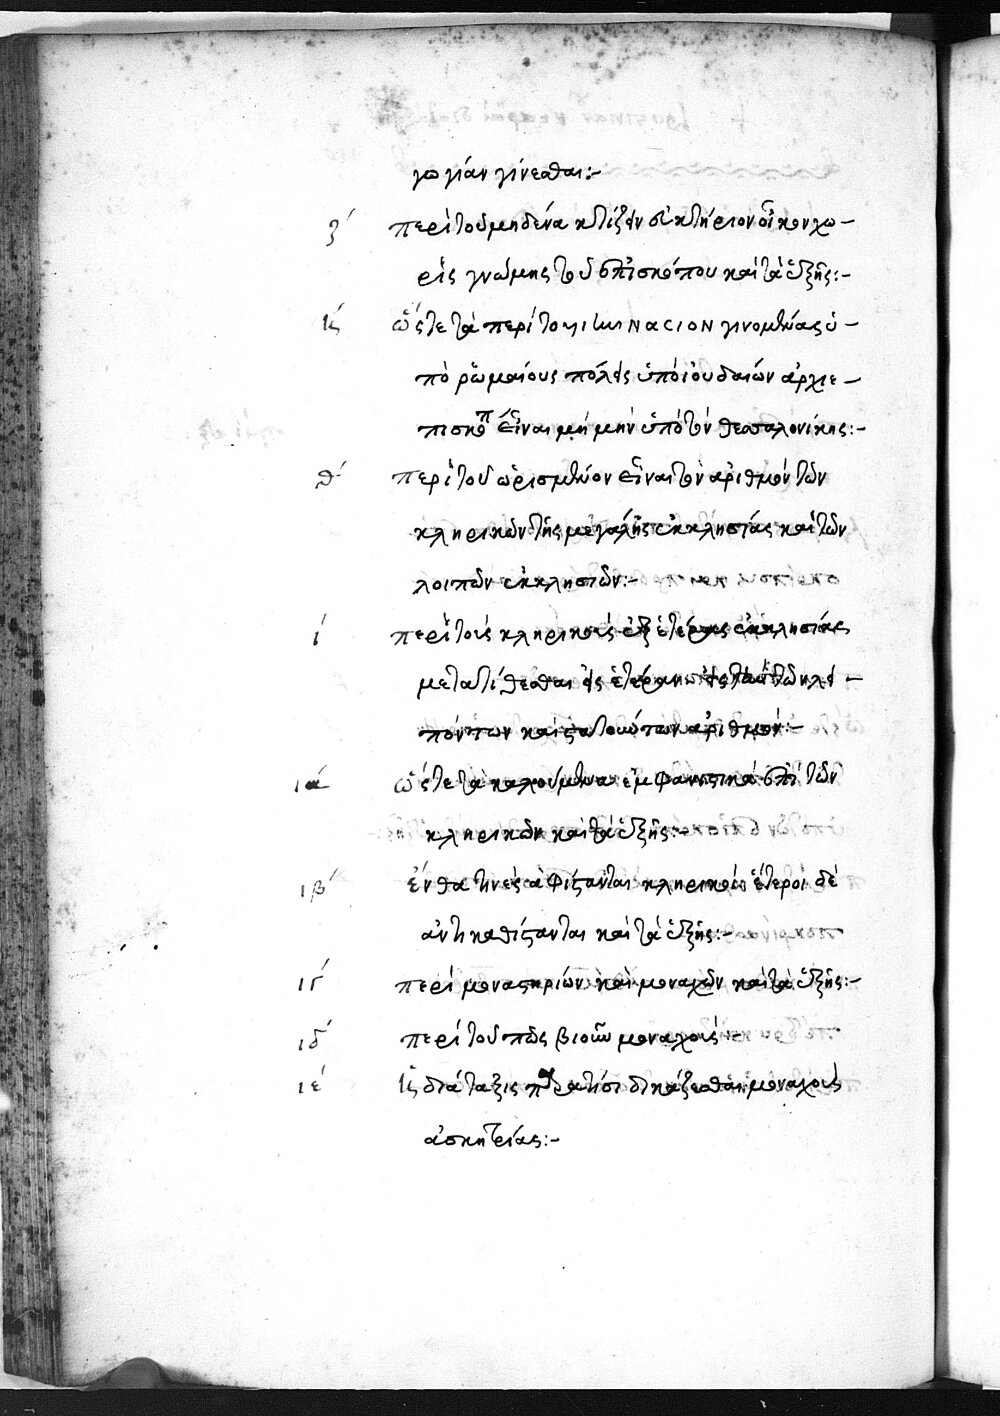 γωγίαν γίνεσθαι:-
ζ´ περὶ τοῦ μηδένα κτίζειν εὐκτήριον οἶκον χω-
ρὶς γνώμης τοῦ ἐπισκόπου καὶ τὰ ἑξῆς:-
ὥστε τὰ περὶ τὸ γινομένας ὑ-
πὸ ῥωμαίους πόλεις ὑπὸ ἰουδαίων ἀρχιε-
πισκοπ εἶναι μὴ μὴν ὑπὸ τὸν θεσσαλονίκης:-
θ´ περὶ τοῦ ὡρισμένον εἶναι τὸν ἀριθμὸν τῶν
κληρικῶν τῆς μεγάλης ἐκκλησίας καὶ τῶν
λοιπῶν ἐκκλησιῶν:-
ί περὶ τοὺς κληρικοὺς ἐξ ἑτέρας ἐκκλησίας
μετατίθεσθαι εἰς ἑτέραν τῶν λει-
πόντων καὶ τούτων ἀριθμόν:-
ιά ὥστε τὰ καλούμενα ἐμφανιστικὰ ἐπὶ τῶν
κληρικῶν καὶ τὰ ἑξῆς:-
ιβ´ ἔνθα τινὲς ἀφίστανται κληρικοὶ ἕτεροι δὲ
ἀντικαθίστανται καὶ τὰ ἑξῆς:-
ιγ´ περὶ μοναστηρίων καὶ μοναχῶν καὶ τὰ ἑξῆς:-
ιδ´ περὶ τοῦ πῶς βιοῦν μοναχούς
ιέ διάταξις παρὰ τίσι δικάζεσθαι μοναχοὺς
ἀσκητρίας:-